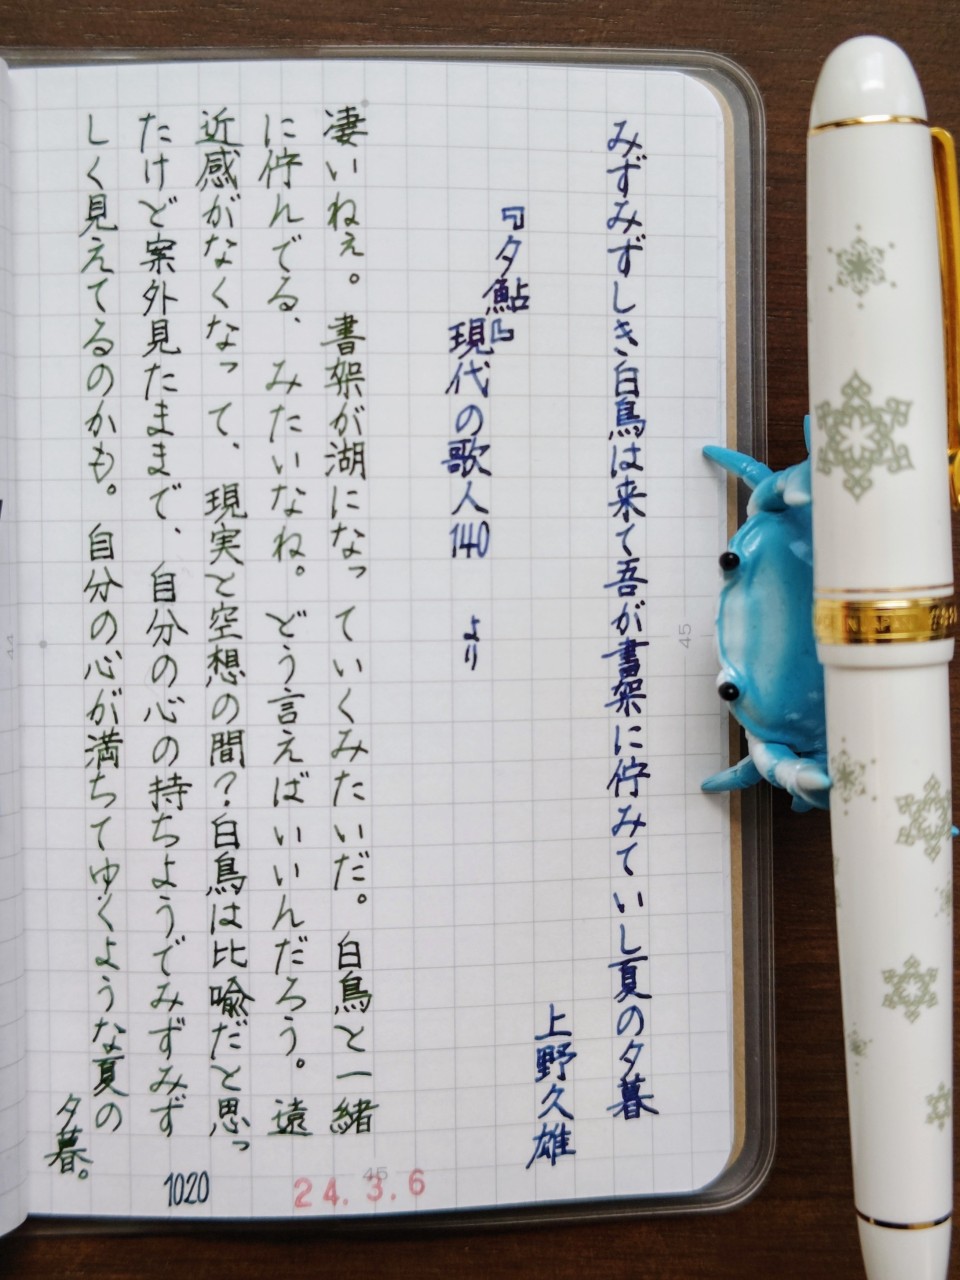 みずみずしき白鳥は来て吾が書架に佇みていし夏の夕暮
上野久雄
『夕鮎』
現代の歌人140 より
凄いねぇ。書架が湖になっていくみたいだ。白鳥と一緒
に佇んでる、みたいなね。どう言えばいいんだろう。遠
近感がなくなって、現実と空想の間？白鳥は比喩だと思っ
たけど案外見たままで、自分の心の持ちようでみずみず
しく見えてるのかも。自分の心が満ちてゆくような夏の
夕暮。
1020
24.3.6
45
45
44